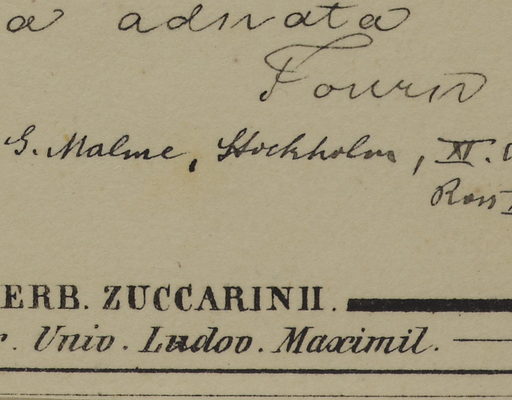 a adnata
Fourn
G. Malme, Stockholm, XI.
ERB. ZUCCARINII.
r. Univ. Ludov. Maximil.